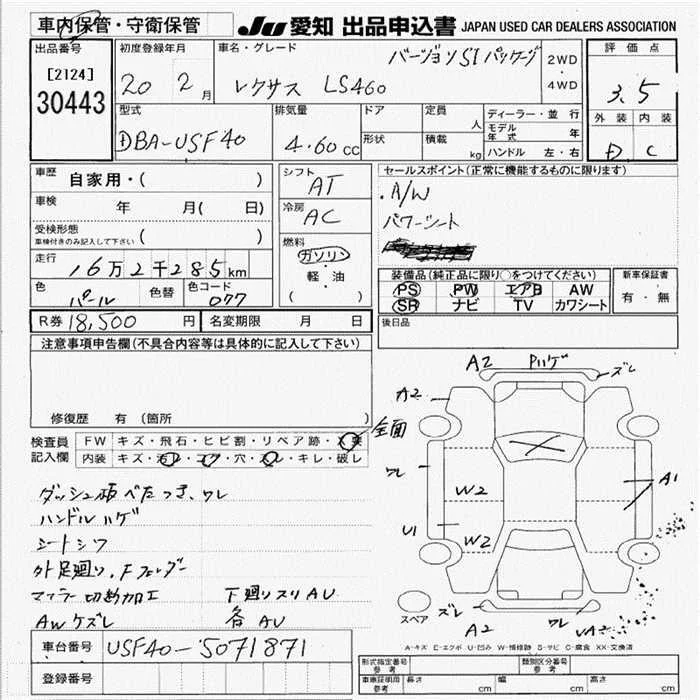 車内保管・守衛保管
JU 愛知 出品申込書 JAPAN USED CAR DEALERS ASSOCIATION
出品番号
[2124]
30443
初度登録年月
20 2月
車名・グレード
バージョンSI パッケージ
レクサス LS460
2WD
・
4WD
評価点
3.5
外装 内装
D C
型式
DBA-USF40
排気量
4.60 cc
ドア
形状
定員 人
積載 kg
ディーラー・並行
モデル年式 年
ハンドル 左・右
車歴 自家用・( )
車検 年 月( 日)
受検形態
車検付きのみ記入して下さい ( )
走行 16万2千285km
色 パール 色替 色コード 077
シフト
AT
冷房
AC
燃料
ガソリン
・
軽・油
( )
セールスポイント(正常に機能するものに限ります)
・A/W
パワーシート
装備品(純正品に限り○をつけてください)
PS PW エアB AW
SR ナビ TV カワシート
新車保証書
有・無
R券 18,500円 名変期限 月 日
後日品
注意事項申告欄(不具合内容等は具体的に記入して下さい)
修復歴 有(箇所 )
検査員
記入欄
FW キズ・飛石・ヒビ割・リペア跡・X要
内装 キズ・汚レ・コゲ・穴・スレ・キレ・破レ
ダッシュ板べたつき、ワレ
ハンドルハゲ
シートシワ
外足廻り、Fフェンダー
マフラー切断加工 下廻りスリAU
AWケズレ 各AU
A2 Pハゲ ズレ
A2
全面
ワレ
W2
A1
U1
W2
スペア
ズレ
A2
ワレ
UA2
A-キズ E-エクボ U-凹み W-補修跡 S-サビ C-腐食 XX-交換済
車台番号 USF40-5071871
登録番号
型式指定番号
参考
類別区分番号
参考
車庫証明用
参考
長さ cm 幅 cm 高さ cm